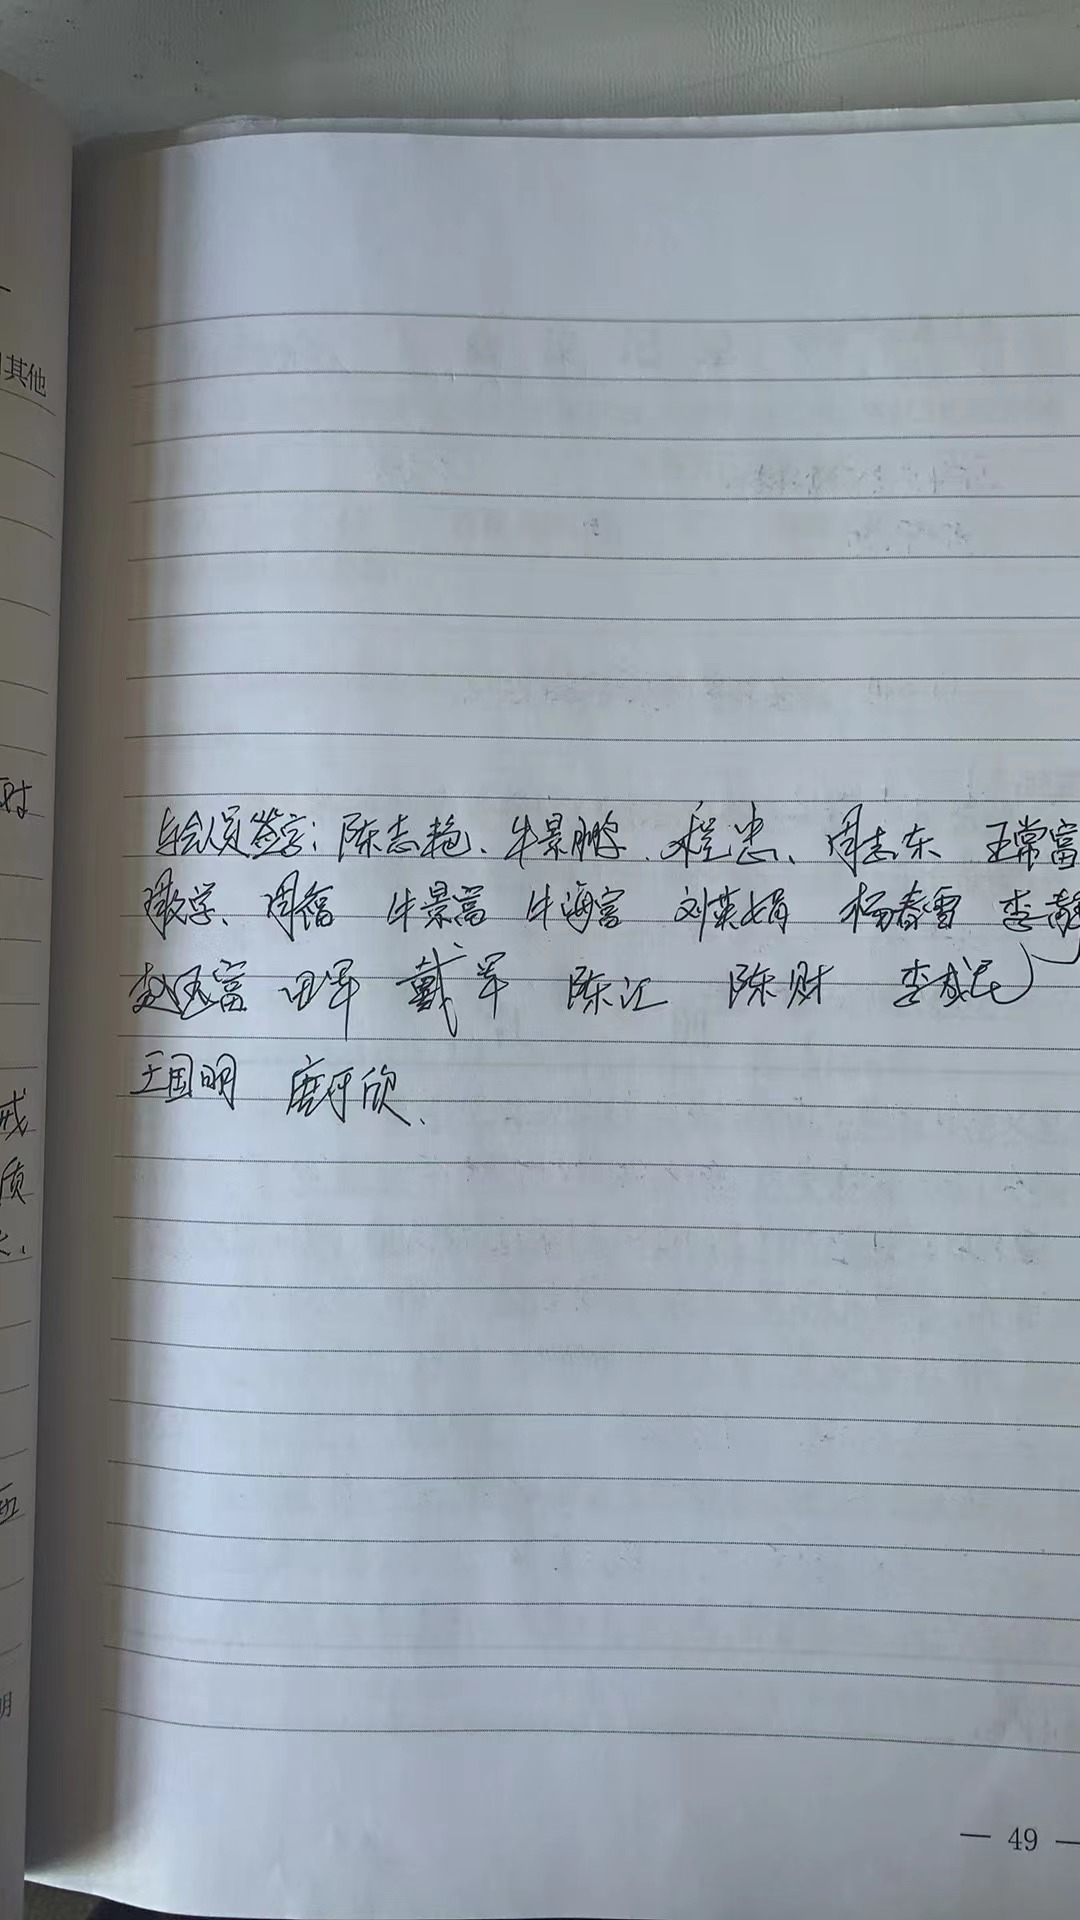 其他
时
与会人员签字：陈志艳、牛景鹏、程忠、周志东 王常富
周教学、周福 牛景富 牛海富 刘英娟 杨春雪 李静
赵玉富 田军 戴军 陈汇 陈财 李成民
王国明 唐子欣、
戒
质
明
— 49 —